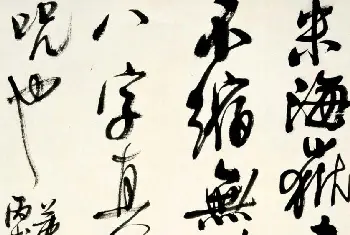 米海嶽
不縮無
八字真
咒也